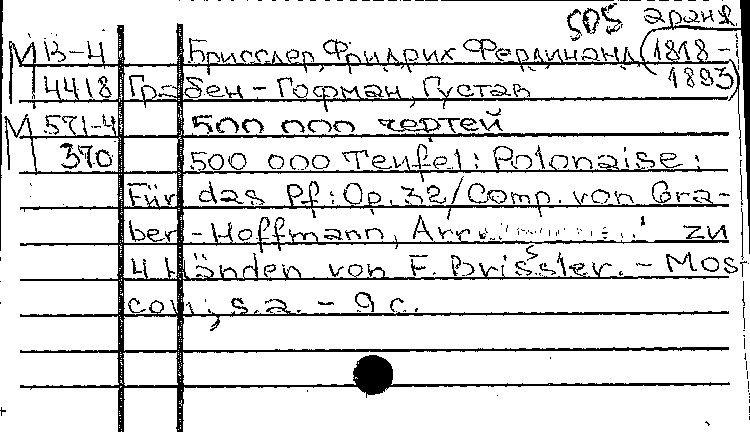 505 аранж
М В-4 Брисслер, Фридрих Фердинанд (1818-
4418 Грабен-Гофман, Густав 1893)
М 571-4 500 000 чертей
370 500 000 Teufel: Polonaise:
Für das Pf: Op. 32/Comp. von Gra-
ben-Hoffmann, Arr. zu
4 Händen von F. Brissler. - Mos-
cou; s.a. - 9 с.